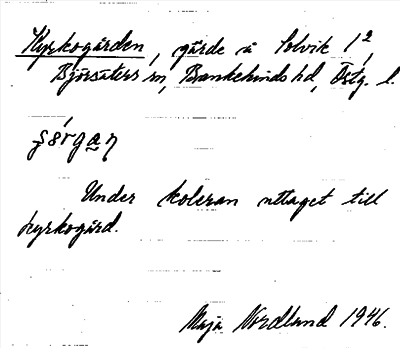 Kyrkogården, gärde å Solvik 1²,
Björsäters sn, Bankekinds hd, Östg. l.
Under koleran uttaget till
kyrkogård.
Maja Nordlund 1946.